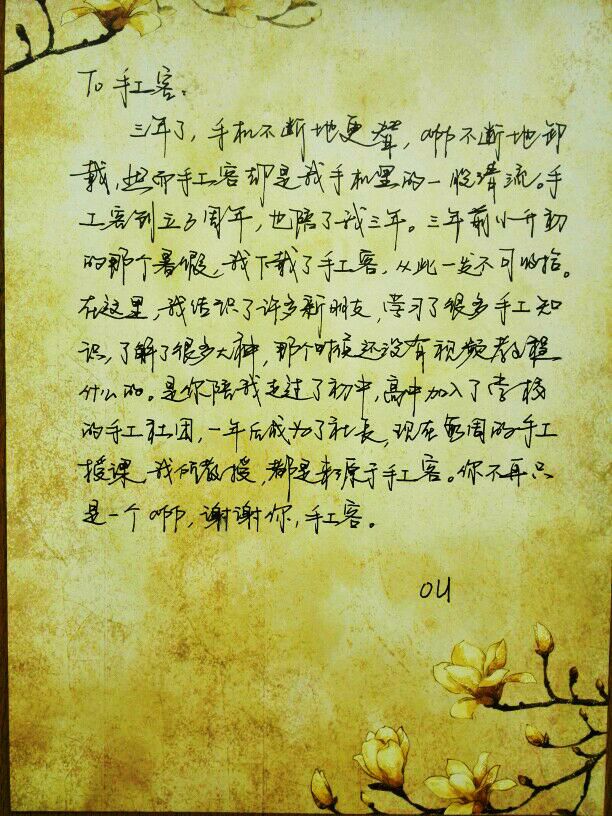 To 手工客:
三年了,手机不断地更替,app不断地卸
载,然而手工客却是我手机里的一股清流。手
工客创立3周年,也陪了我三年。三年前小升初
的那个暑假,我下载了手工客,从此一发不可收拾。
在这里,我结识了许多新朋友,学习了很多手工知
识,了解了很多大神,那个时候还没有视频教程
什么的。是你陪我走过了初中,高中加入了学校
的手工社团,一年后成为了社长,现在每周的手工
授课,我所教授,都是来源于手工客。你不再只
是一个app,谢谢你,手工客。
OU